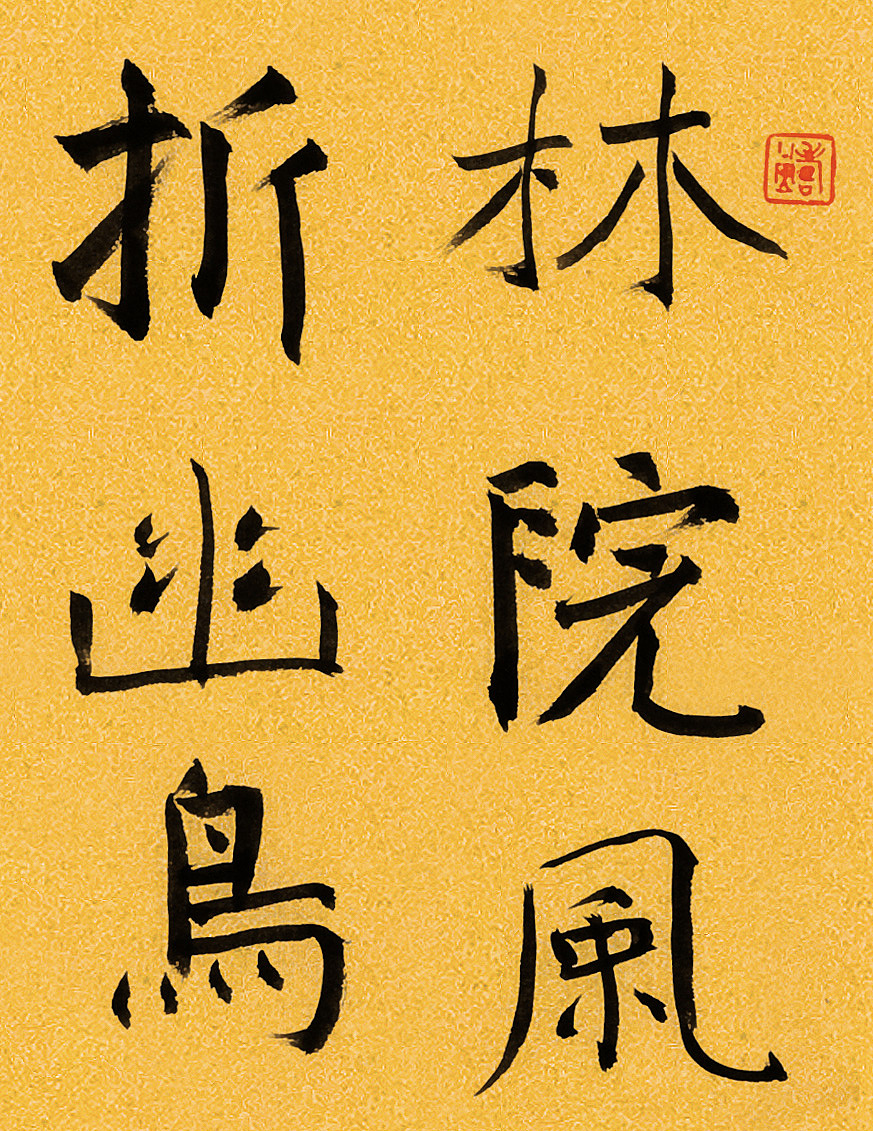 林院風
折幽鳥